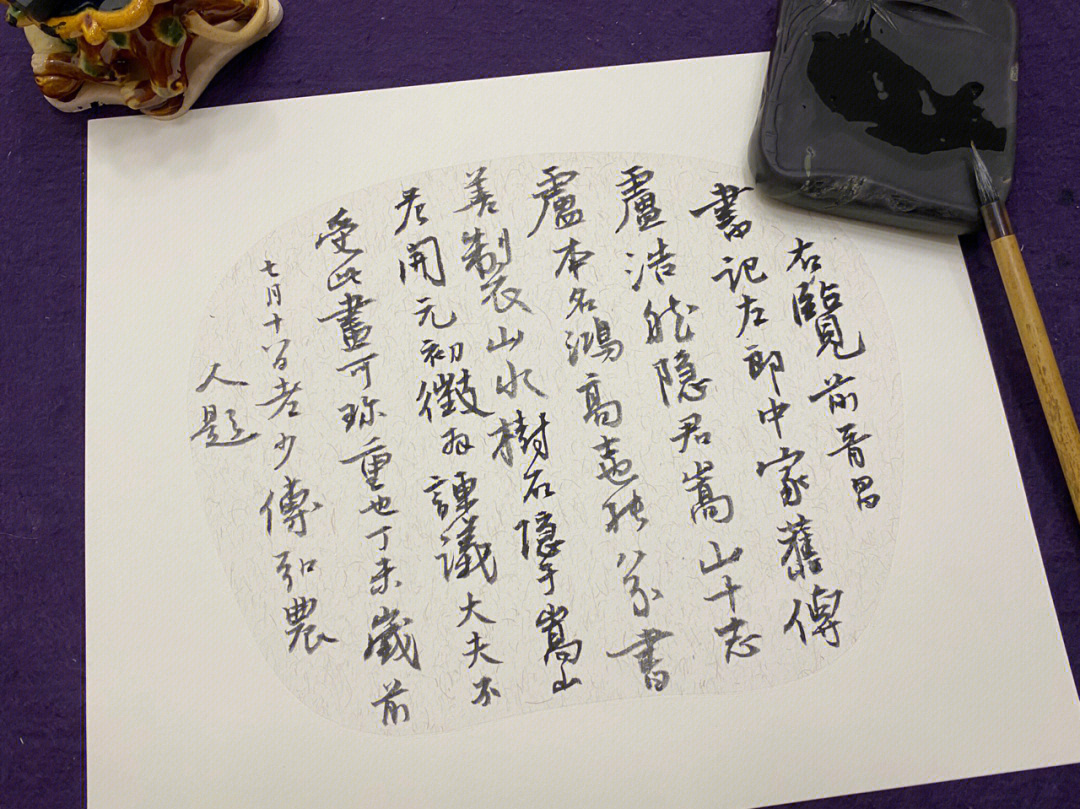 右覽前晉昌
書記左郎中家舊傳
盧浩然隱君嵩山十志
盧本名鴻高士也能八分書
善製山水樹石隱于嵩山
開元初徵拜諫議大夫不
受此畫可珍重也丁未歲前
七月十八日老少傅弘農
人題